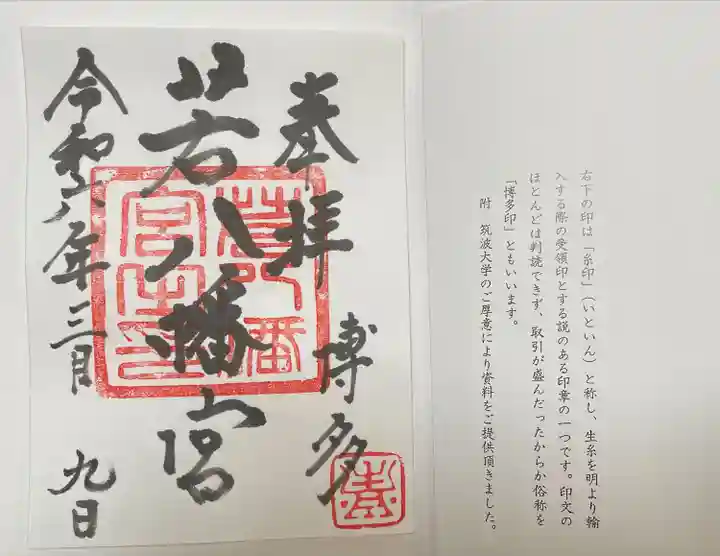 右下の印は「糸印」（いといん）と称し、生糸を明より輸
入する際の受領印とする説のある印章の一つです。印文の
ほとんどは判読できず、取引が盛んだったからか俗称を
「博多印」ともいいます。
附　筑波大学のご厚意により資料をご提供頂きました。
奉拝
博多
若八幡宮
令和六年三月九日
若八幡
宮之印